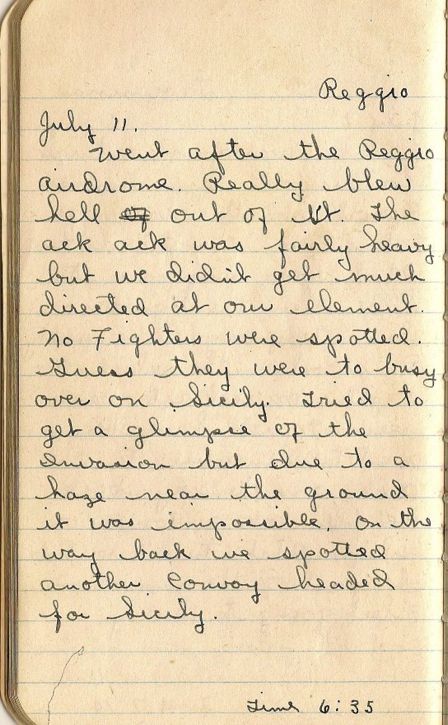 Reggio
July 11.
Went after the Reggio
airdrome. Really blew
hell of out of it. The
ack ack was fairly heavy
but we didn't get much
directed at our element.
No Fighters were spotted.
Guess they were to busy
over on Sicily. Tried to
get a glimpse of the
invasion but due to a
haze near the ground
it was impossible. On the
way back we spotted
another Convoy headed
for Sicily.
Time 6:35